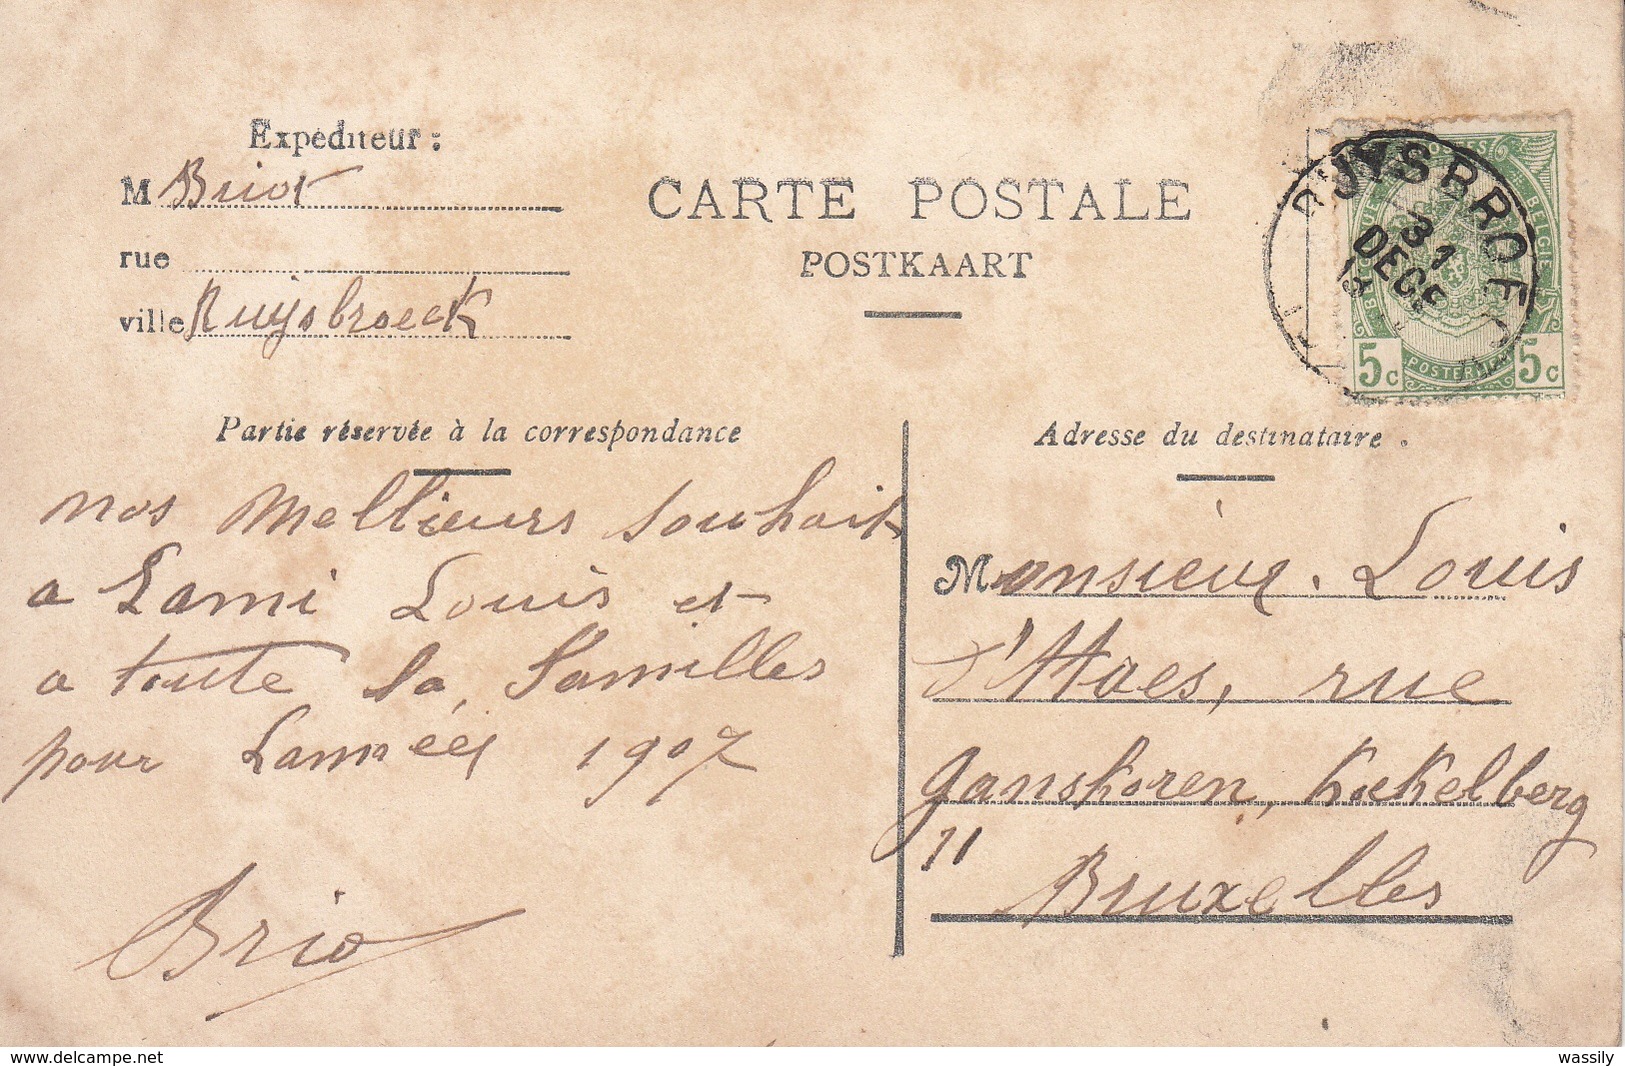 Expéditeur :
M Briot
rue
ville Ruysbroeck
CARTE POSTALE
POSTKAART
RUYSBROE
31
DECE
5 c
POSTERIJEN
5 c
Partie réservée à la correspondance
nos mellieurs souhait
a Lami Louis et
a toute la familles
pour Lannéé 1907
Brio
Adresse du destinataire.
Monsieur. Louis
d'Haes, rue
Ganshoren, Koekelberg
11
Bruxelles
delcampe.net
wassily